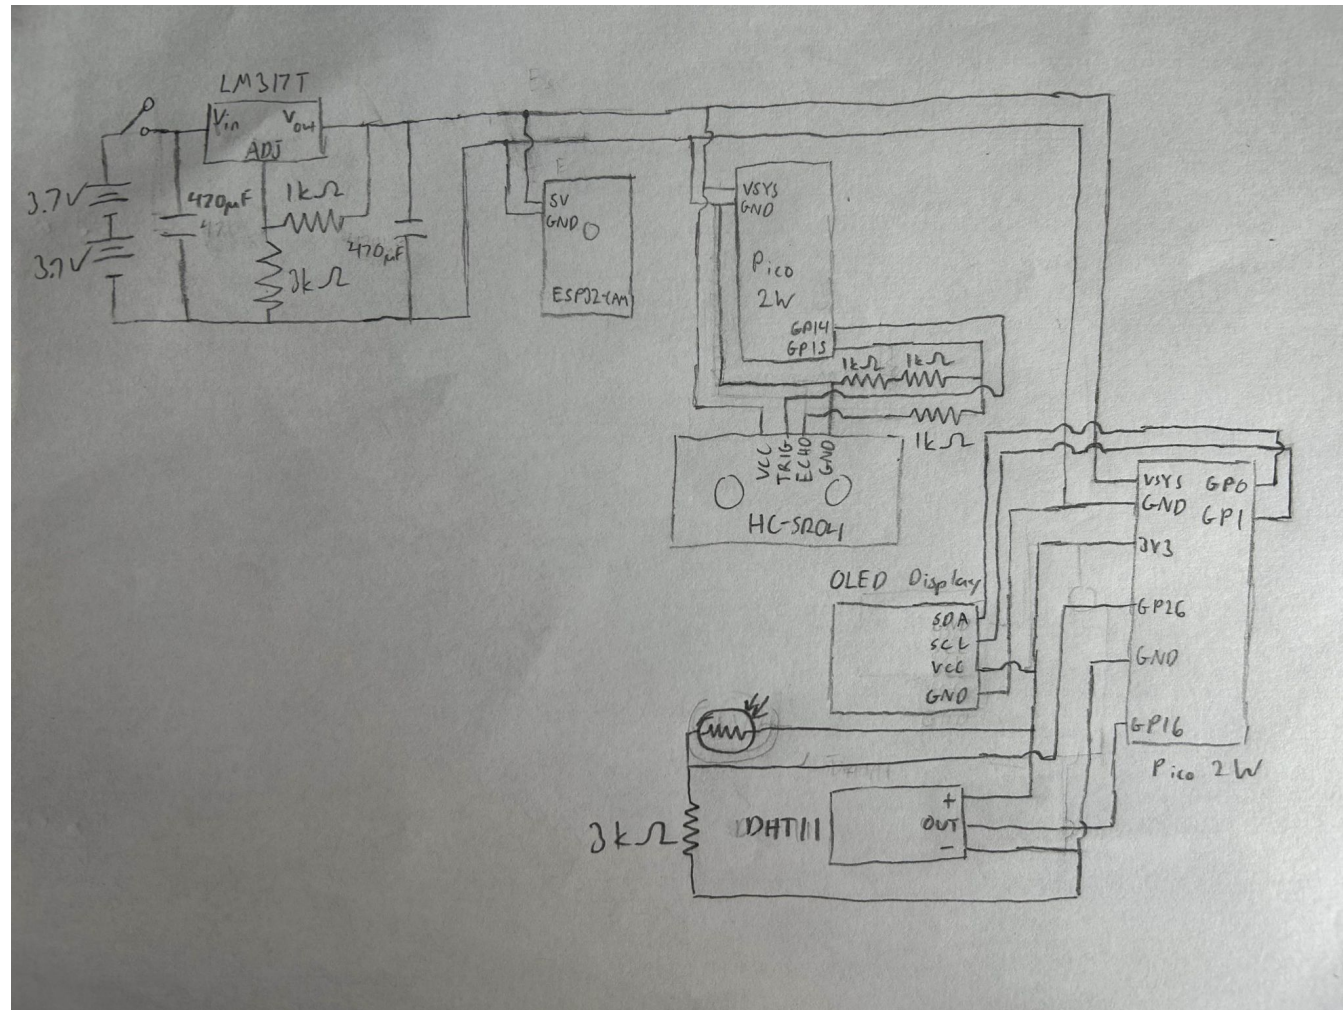 LM317T
Vin
Vout
ADJ
3.7V
3.7V
470µF
1kΩ
3kΩ
470µF
5V
GND
ESP32-CAM
VSYS
GND
Pico
2W
GP14
GP15
1kΩ
1kΩ
1kΩ
VCC
TRIG
ECHO
GND
HC-SR04
VSYS
GND
3V3
GP26
GND
GP16
GP0
GP1
Pico 2W
OLED Display
SDA
SCL
VCC
GND
3kΩ
DHT11
+
OUT
-